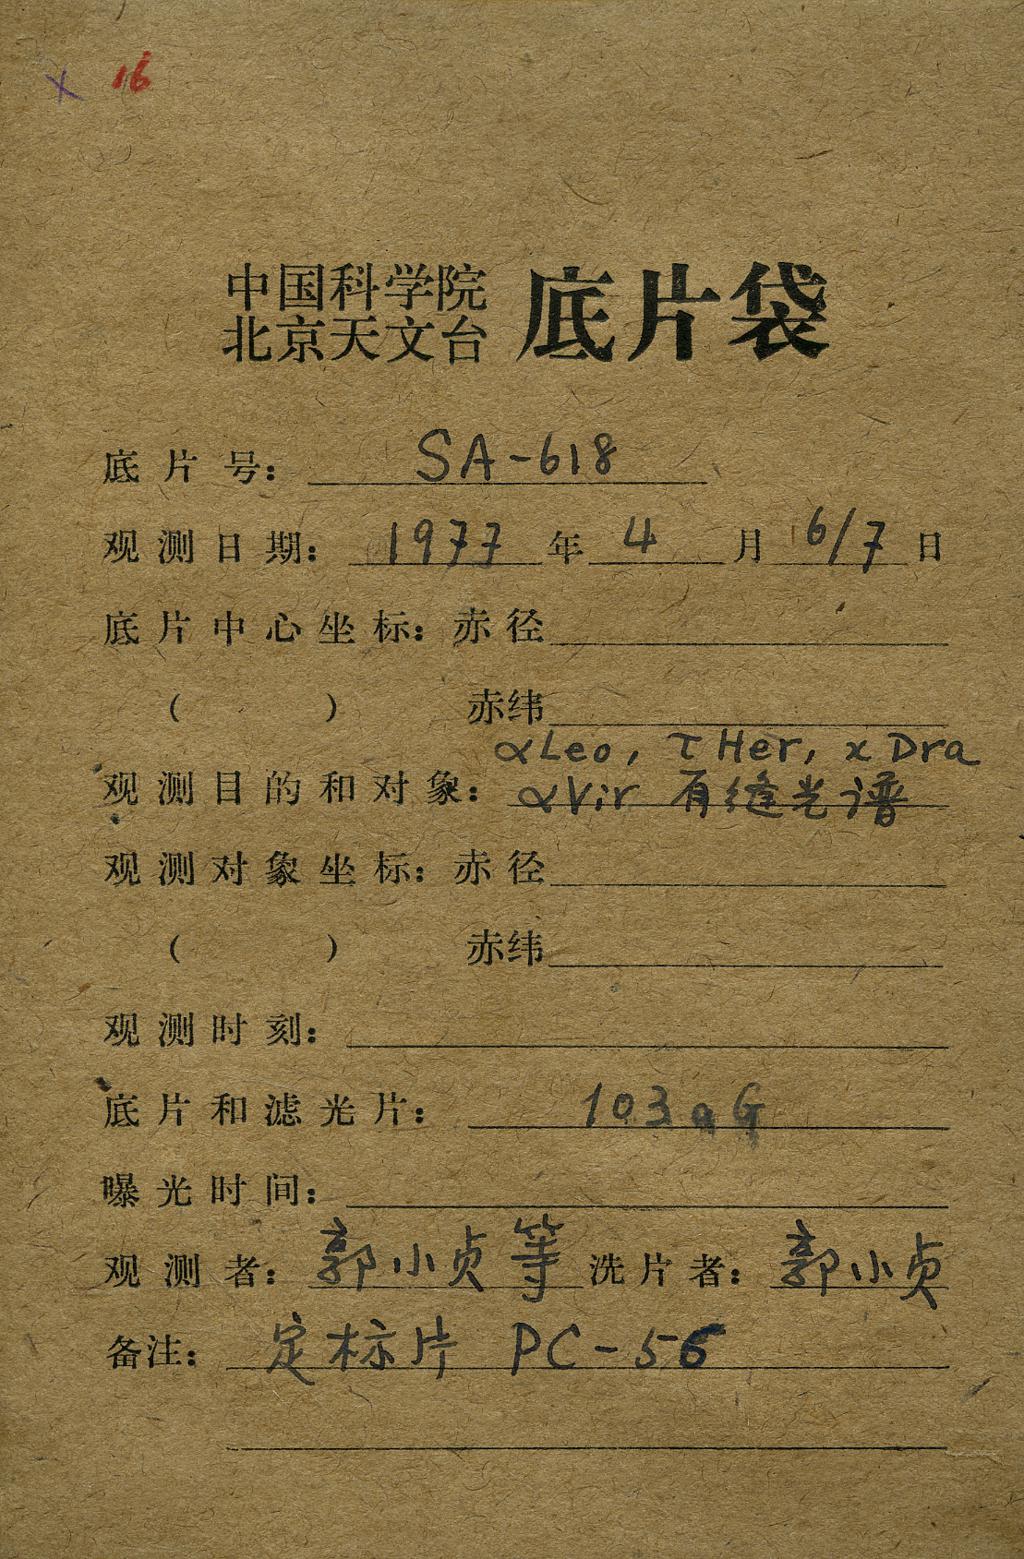 x 16
中国科学院
北京天文台 底片袋
底片号: SA-618
观测日期: 1977年4月6/7日
底片中心坐标: 赤径
( ) 赤纬
αLeo, τHer, x Dra
观测目的和对象: αVir 有缝光谱
观测对象坐标: 赤径
( ) 赤纬
观测时刻:
底片和滤光片: 103aG
曝光时间:
观测者: 郭小贞等 洗片者: 郭小贞
备注: 定标片 PC-56